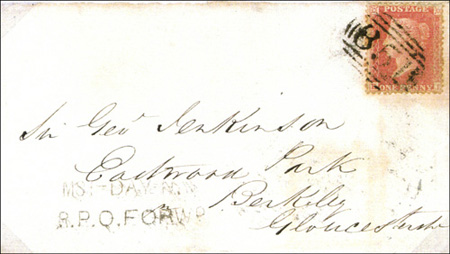 POSTAGE
ONE PENNY
Sir Geo Jenkinson
Eastwood Park
Berkeley
Gloucestersh
R.P.O. FORWD